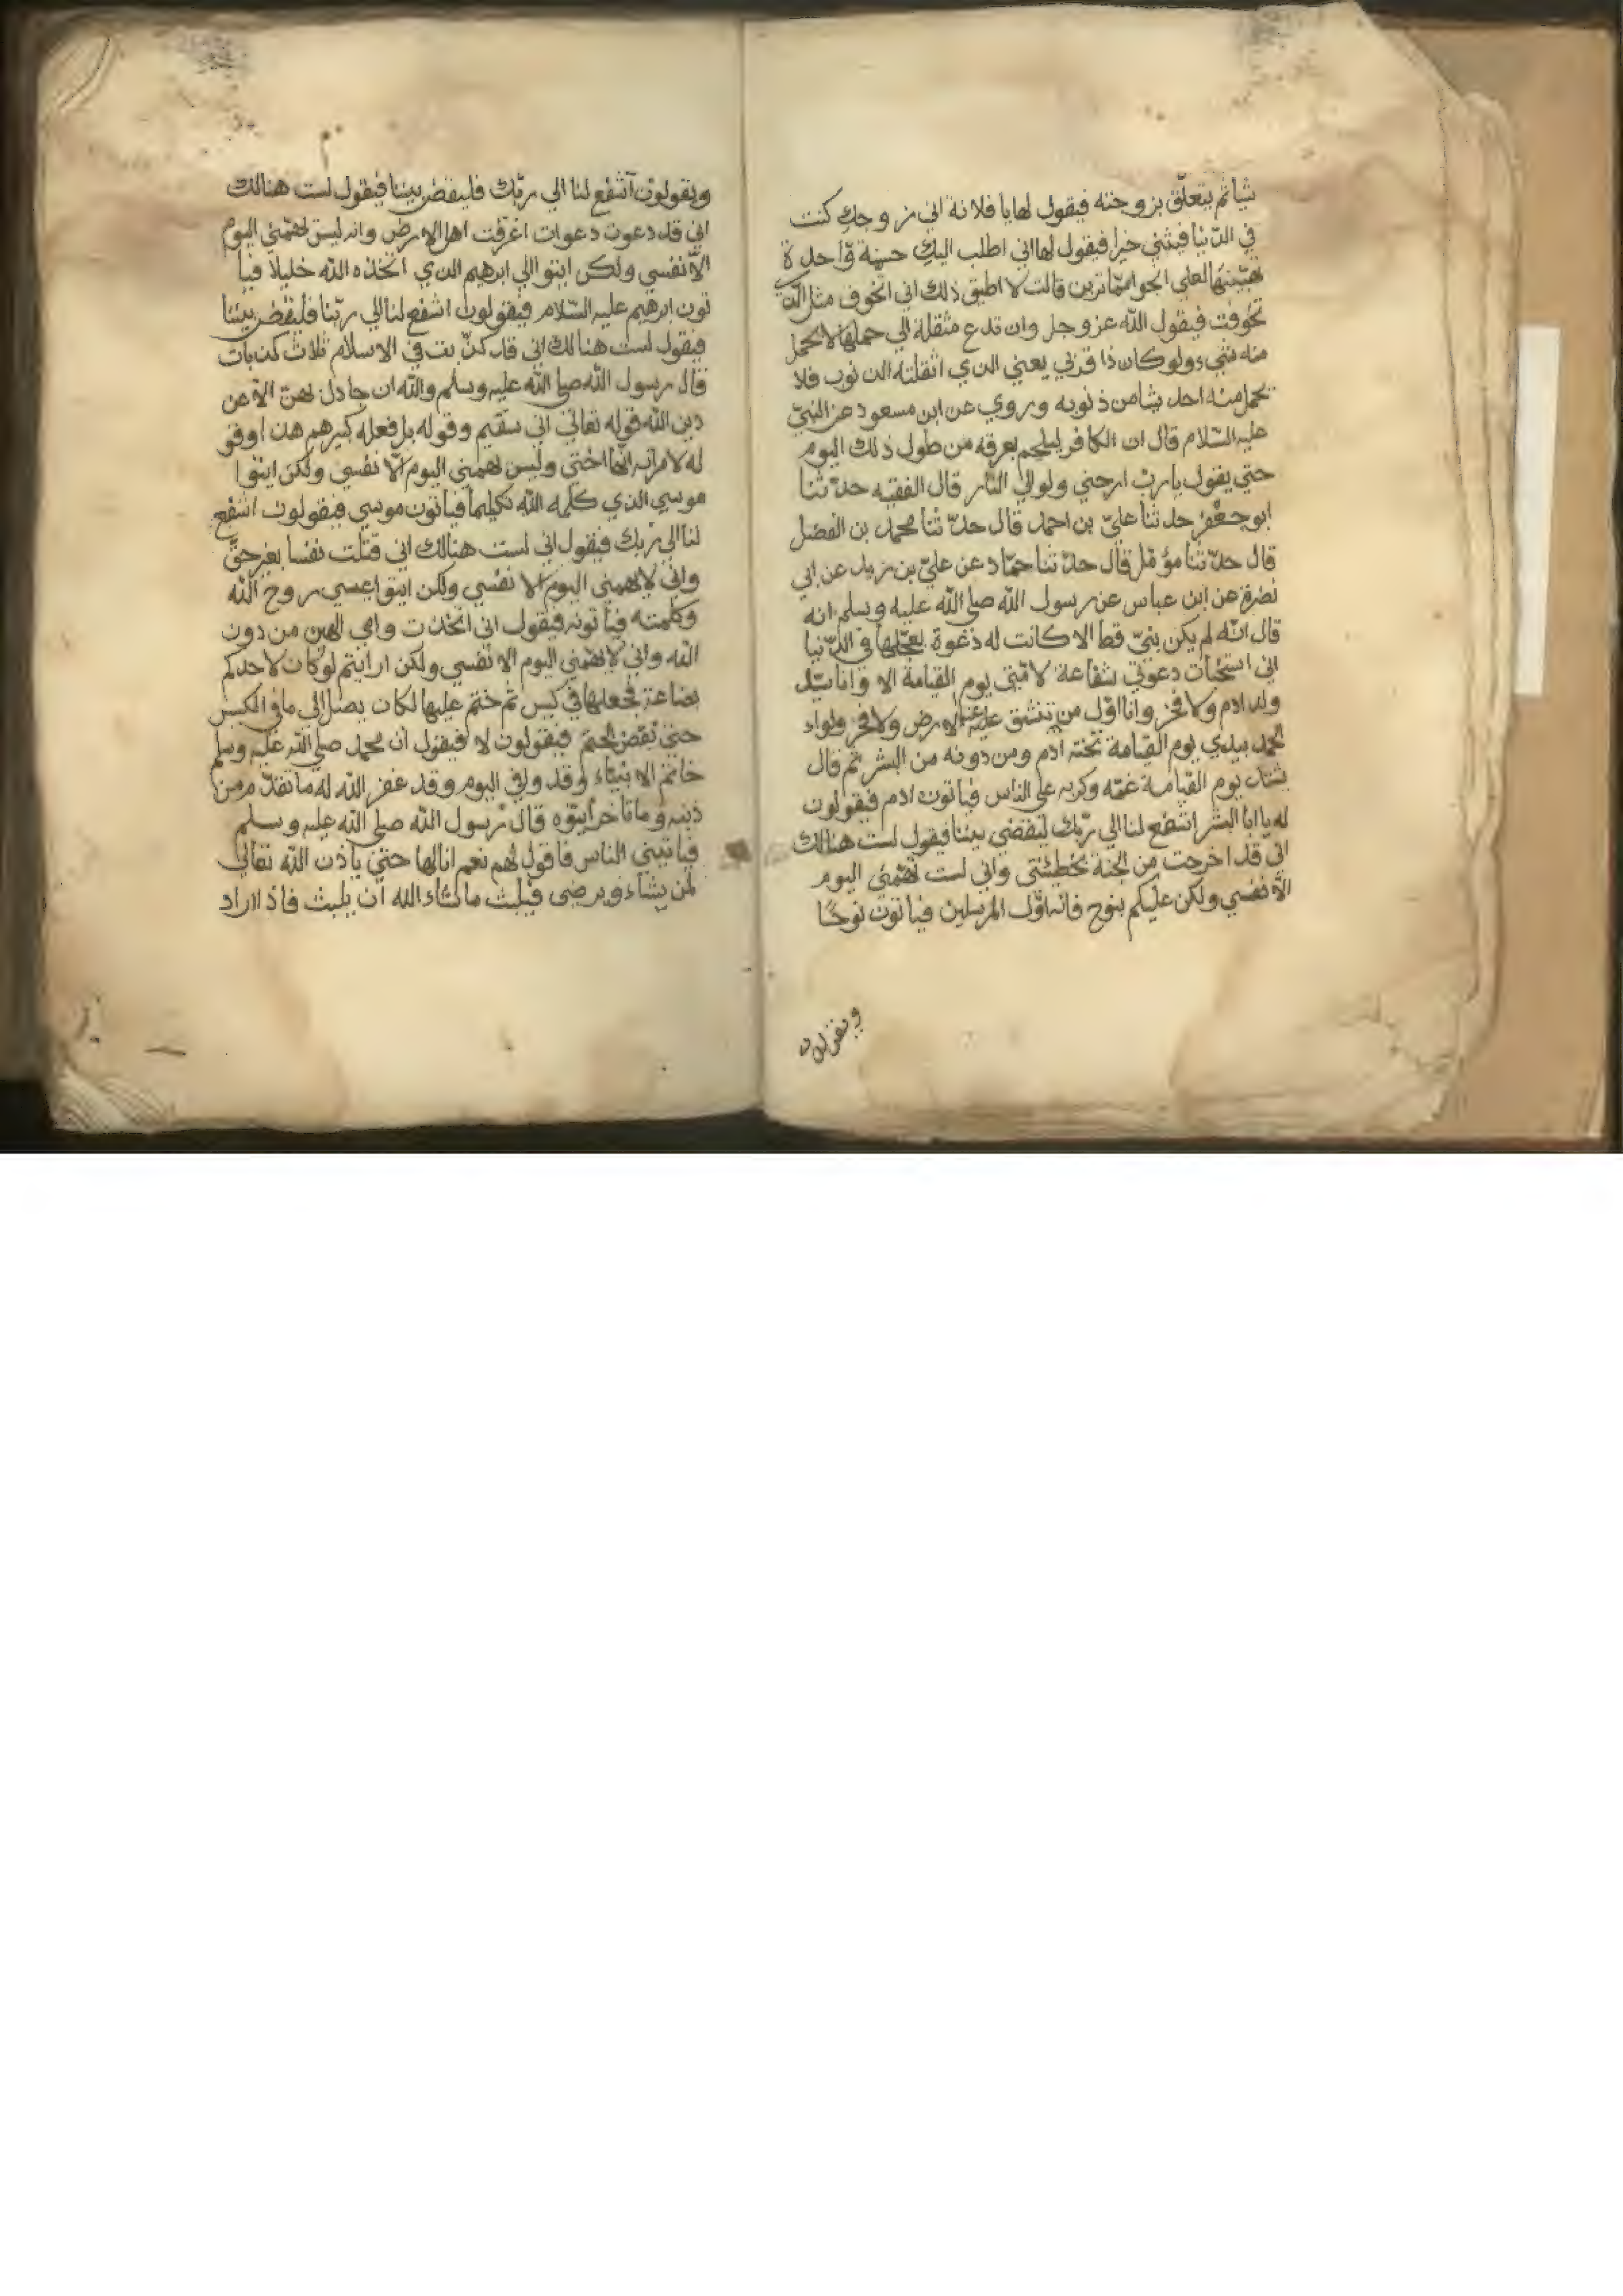 شيأ ثم يتعلّق بزوجته فيقول لها يا فلانة اني زوجك كنت
في الدّنيا فيثني خيرا فيقول لها اني اطلب اليك حسنة وّاحدة
تهبينها لعلي انجو ممّا ترين قالت لا اطيق ذلك اني اتخوف مثل الذي
تخوفت فيقول الله عز وجل وان تدع مثقلة الي حملها لا يحمل
منه شيء ولو كان ذا قربي يعني الذي اثقلته الذنوب فلا
يحمل منه احد شيأ من ذنوبه وروي عن ابن مسعود عن النبيّ
عليه السّلام قال ان الكافر ليلجم بعرقه من طول ذلك اليوم
حتي يقول يا ربّ ارحني ولو الي النّار قال الفقيه حدّثنا
ابو جعفر حدثنا عليّ بن احمد قال حدّثنا محمد بن الفضل
قال حدّثنا مؤمّل قال حدّثنا حمّاد عن عليّ بن زيد عن ابي
نضرة عن ابن عباس عن رسول الله صلي الله عليه وسلم انه
قال انّه لم يكن نبيّ قط الا كانت له دعوة يعجّلها في الدّنيا
اني استخبأت دعوتي شفاعة لامّتي يوم القيامة الا وانا سيّد
ولد ادم ولا فخر وانا اوّل من تنشق عنه الارض ولا فخر ولواء
الحمد بيدي يوم القيامة تحته ادم ومن دونه من البشر ثم قال
يشتد يوم القيامة غمّه وكربه علي الناس فيأتون ادم فيقولون
له يا ابا البشر اشفع لنا الي ربّك ليقضي بيننا فيقول لست هنالك
اني قد اخرجت من الجنة بخطيئتي واني لست تهمّني اليوم
الّا نفسي ولكن عليكم بنوح فانه اوّل المرسلين فيأتون نوحًا
ويقولون
ويقولون آشفع لنا الي ربّك فليقض بيننا فيقول لست هنالك
اني قد دعوت دعوات اغرقت اهل الارض وانه ليس تهمّني اليوم
الّا نفسي ولكن ايتوا الي ابرهيم الذي اتخذه الله خليلا فيأ
تون ابرهيم عليه السّلام فيقولون اشفع لنا الي ربّنا فليقض بيننا
فيقول لست هنالك اني قد كذّبت في الاسلام ثلاث كذبات
قال رسول الله صلي الله عليه وسلم والله ان جادل بهنّ الّا عن
دين الله قوله تعالي اني سقيم وقوله بل فعله كبيرهم هذا وقو
له لامراته انّها اختي وليس تهمني اليوم الّا نفسي ولكن ايتوا
موسي الذي كلّمه الله تكليما فيأتون موسي فيقولون اشفع
لنا الي ربك فيقول اني لست هنالك اني قتلت نفسا بغير حقّ
واني لا يهمني اليوم الا نفسي ولكن ايتوا عيسي روح الله
وكلمته فيأتونه فيقول اني اتخذت وامي الهين من دون
الله واني لا يهمّني اليوم الا نفسي ولكن ارايتم لو كان لاحدكم
بضاعة فجعلها في كيس ثم ختم عليها لكان يصل الي ما في الكيس
حتي يفض الختم فيقولون لا فيقول ان محمد صلي الله عليه وسلم
خاتم الانبياء وقد وفي اليوم وقد غفر الله له ما تقدّم من
ذنبه وما تأخر أيتوه قال رسول الله صلي الله عليه وسلم
فيأتيني الناس فاقول لهم نعم انا لها حتي يأذن الله تعالي
لمن يشاء ويرضي فيلبث ما شاء الله ان يلبث فاذا اراد